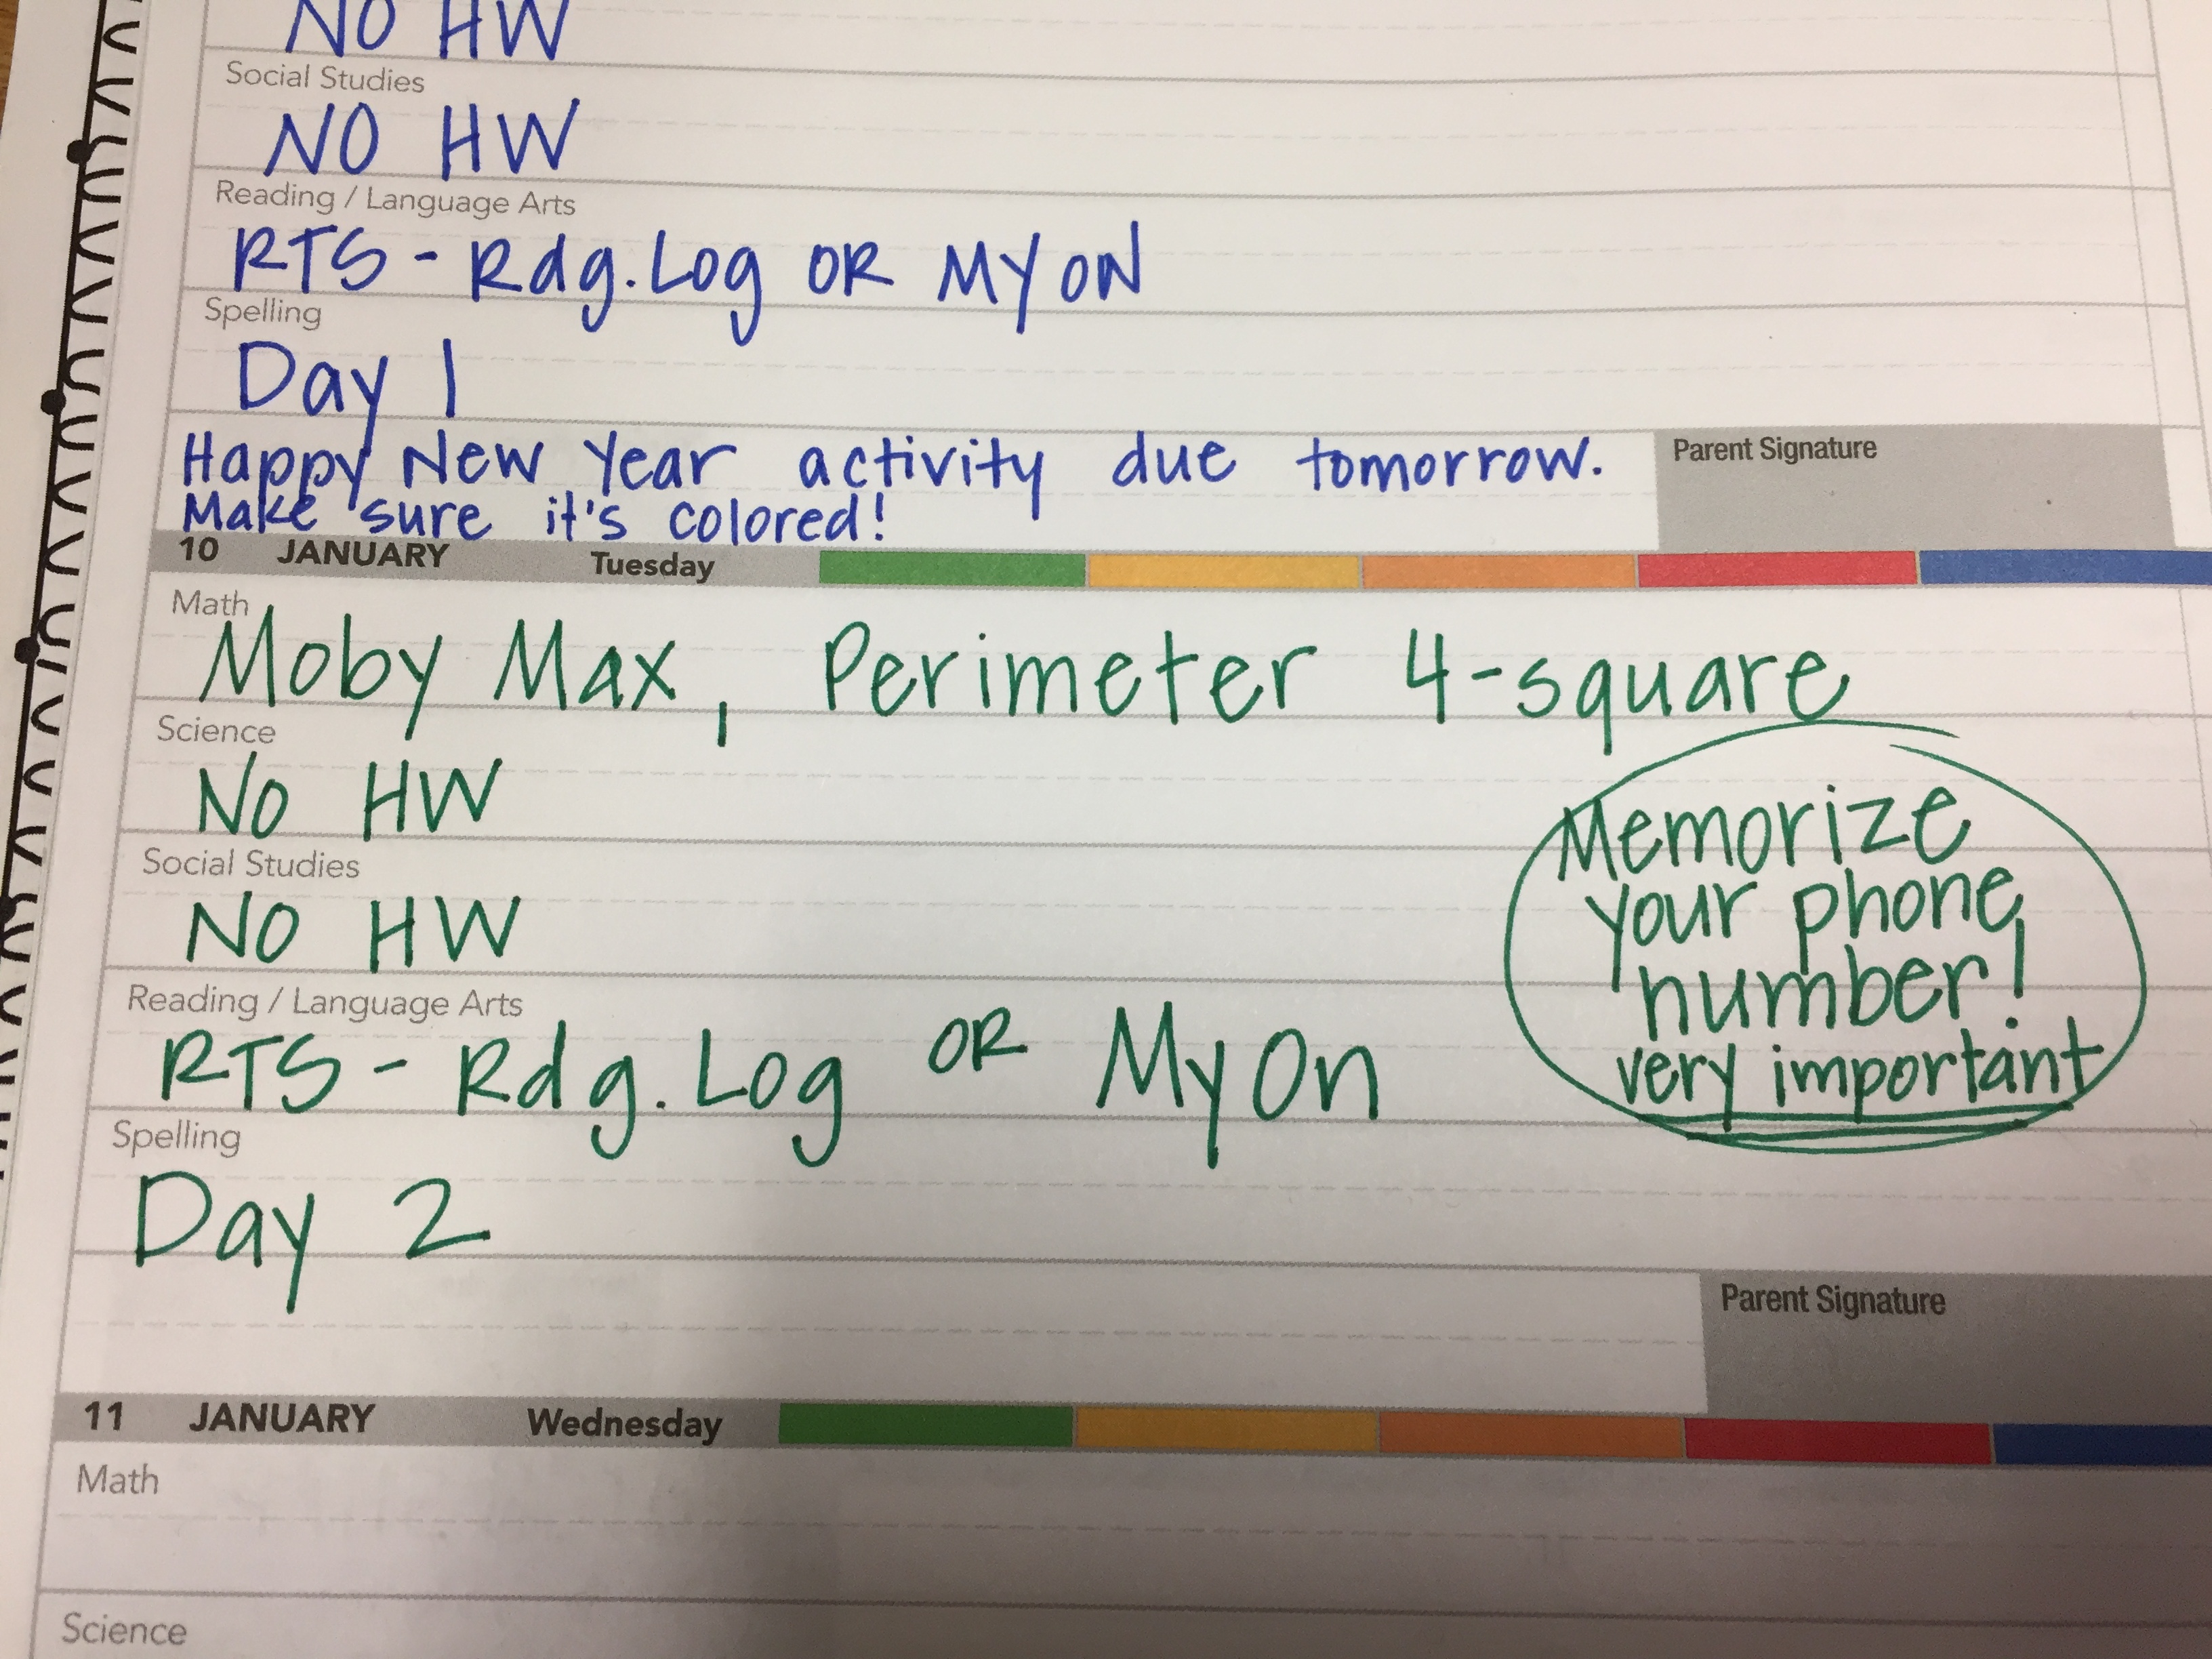 NO HW
Social Studies
NO HW
Reading / Language Arts
RTS - Rdg. Log OR MY ON
Spelling
Day 1
Happy New Year activity due tomorrow.
Make sure it's colored!
Parent Signature
10 JANUARY Tuesday
Math
Moby Max, Perimeter 4-square
Science
No HW
Social Studies
NO HW
Reading / Language Arts
RTS - Rdg. Log OR My On
Spelling
Day 2
Memorize
your phone
number!
very important
Parent Signature
11 JANUARY Wednesday
Math
Science